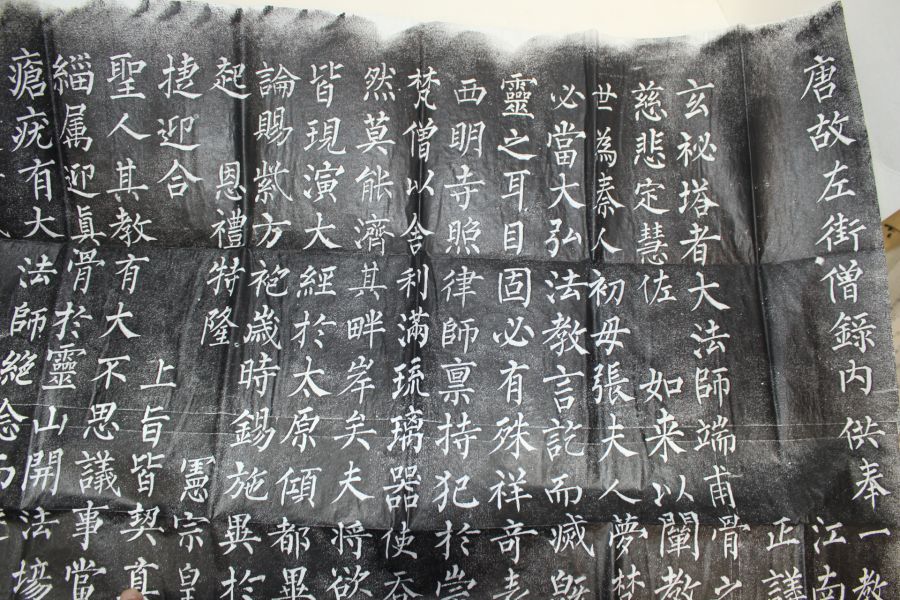 唐故左街僧錄內供奉三教
江南
正議
玄祕塔者大法師端甫骨之
慈悲定慧佐 如来以闡教
世為秦人初母張夫人夢梵
必當大弘法教言訖而滅既
靈之耳目固必有殊祥奇表
西明寺照律師禀持犯於崇
梵僧以舍利滿琉璃器使吞
然莫能濟其畔岸矣夫將欲
皆現演大經於太原傾都畢
論賜紫方袍歲時錫施異於
起 恩禮特隆 憲宗皇
捷迎合 上旨皆契真
聖人其教有大不思議事當
緇属迎眞骨於靈山開法場
瘡疣有大法師絕念